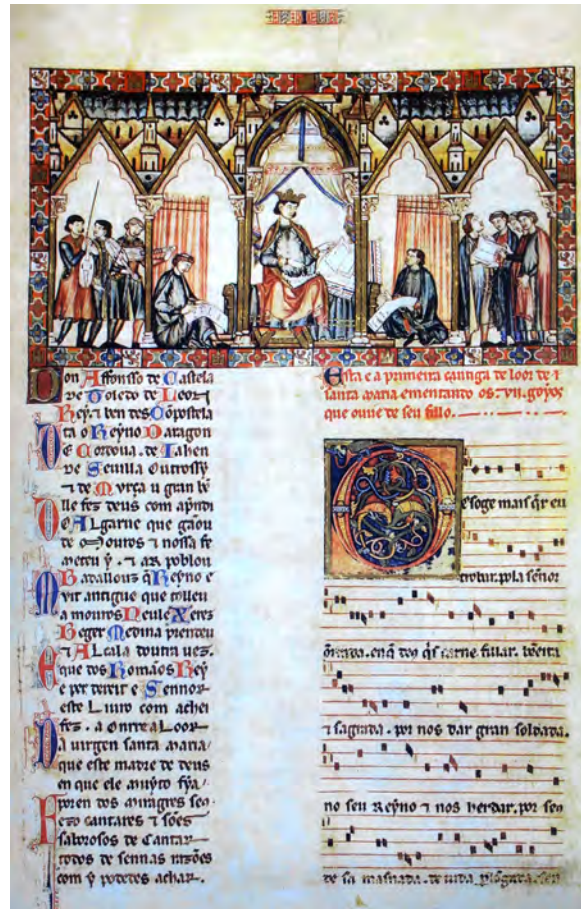 Don Affonsso de Castela
de Toledo de Leon
Rey ⁊ ben des Conpostela
ta o Reyno Daragon
De Cordova de Jahen
de Sevilla outrossy
⁊ de Murça u gran bẽ
lle fez deus com apndi
Do Algarve que gãou
de Mouros ⁊ nossa fe
meteu y. ⁊ ar poblou
Badallouz q̃ Reyno e
Muit antigue que tolleu
a mouros Neule Xeres
Beger Medina prendeu
⁊ Alcala doutra vez.
E que dos Romãos Rey
e per dereit e Sennor
este Livro com achei
fez. a Onrr e a Loor
Da virgen santa Maria
que este madre de deus
en que ele muyto fya
Poren dos miragres seus
fezo cantares ⁊ sões
saborosos de Cantar
todos de sennas razões
com y podedes achar.
Esta e a primeira cantiga de loor de
santa maria ementando os. vii. goyos
que ouve de seu fillo.
Des oge mais q̃r eu
trobar. pola señor
õrrada. en q̃ ds q̃s carne fillar. bẽeita
⁊ sagrada. por nos dar gran soldada.
no seu Reyno ⁊ nos herdar. por seus
de sa masnada. de vida